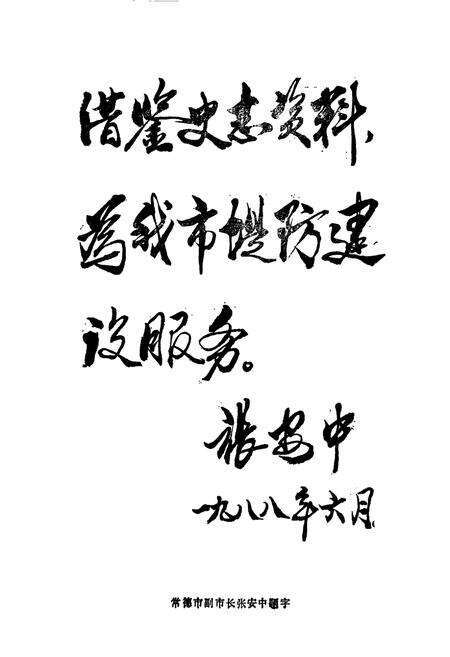 借鉴史志资料、
为我市堤防建
设服务。
张安中
一九八八年六月
常德市副市长张安中题字